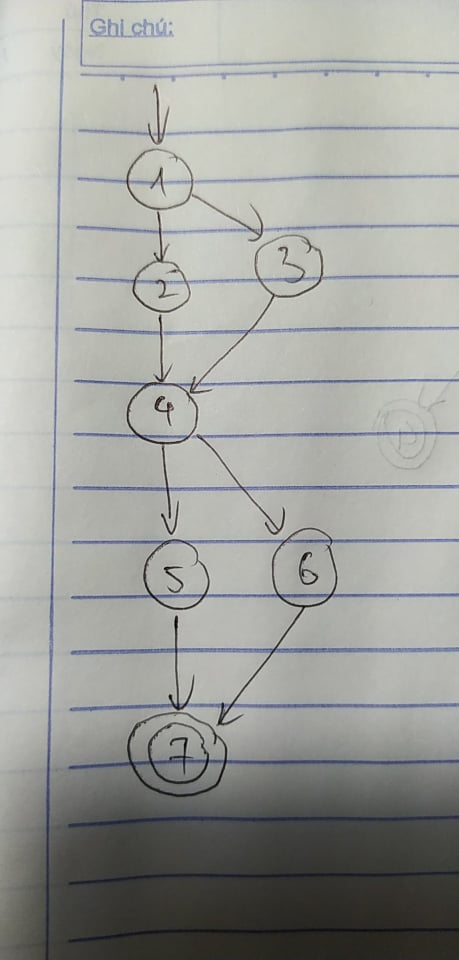 Ghi chú:
1
3
2
4
5
6
7